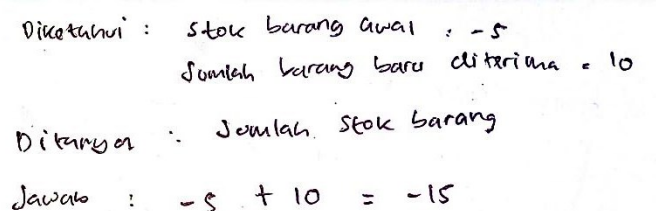 Diketahui : Stok barang awal : -5
Jumlah barang baru diterima = 10
Ditanya : Jumlah stok barang
Jawab : -5 + 10 = -15